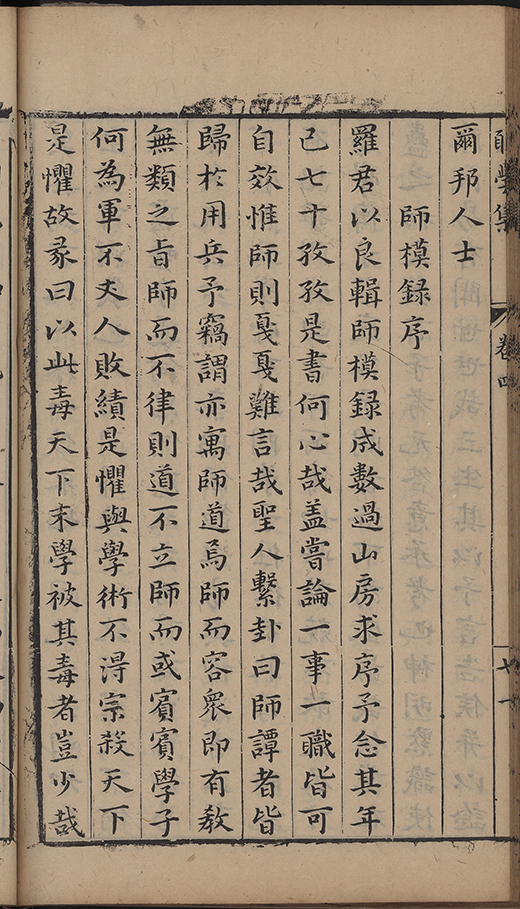 願學集 卷四 七一
爾邦人士
師模録序
羅君以良輯師模録成數過山房求序予念其年
已七十孜孜是書何心哉盖嘗論一事一職皆可
自效惟師則戛戛難言哉聖人繫卦曰師譚者皆
歸於用兵予竊謂亦寓師道焉師而容衆即有教
無類之旨師而不律則道不立師而或賔賔學子
何為軍不丈人敗績是懼與學術不得宗殺天下
是懼故彖曰以此毒天下末學被其毒者豈少哉